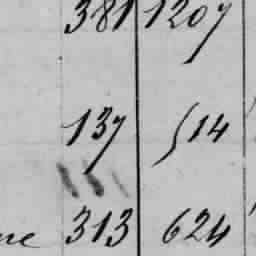 381 1207
137 514
ne 313 624